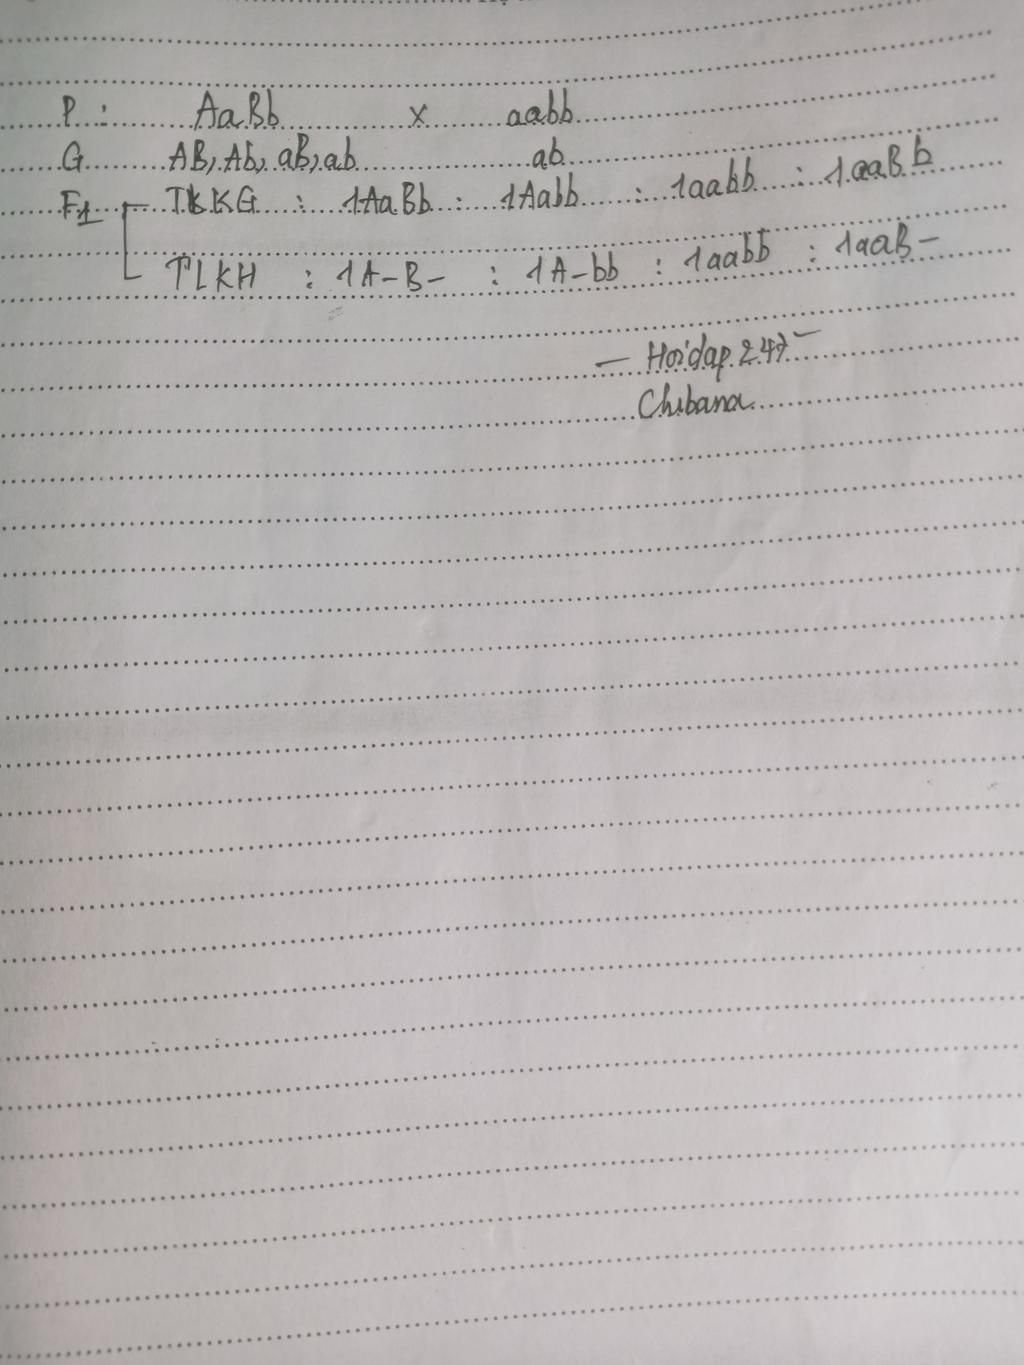 P : AaBb x aabb
G AB, Ab, aB, ab ab
F1 TLKG : 1AaBb : 1Aabb : 1aabb : 1aaBb
TLKH : 1A-B- : 1A-bb : 1aabb : 1aaB-
- Hoidap247 -
Chibana